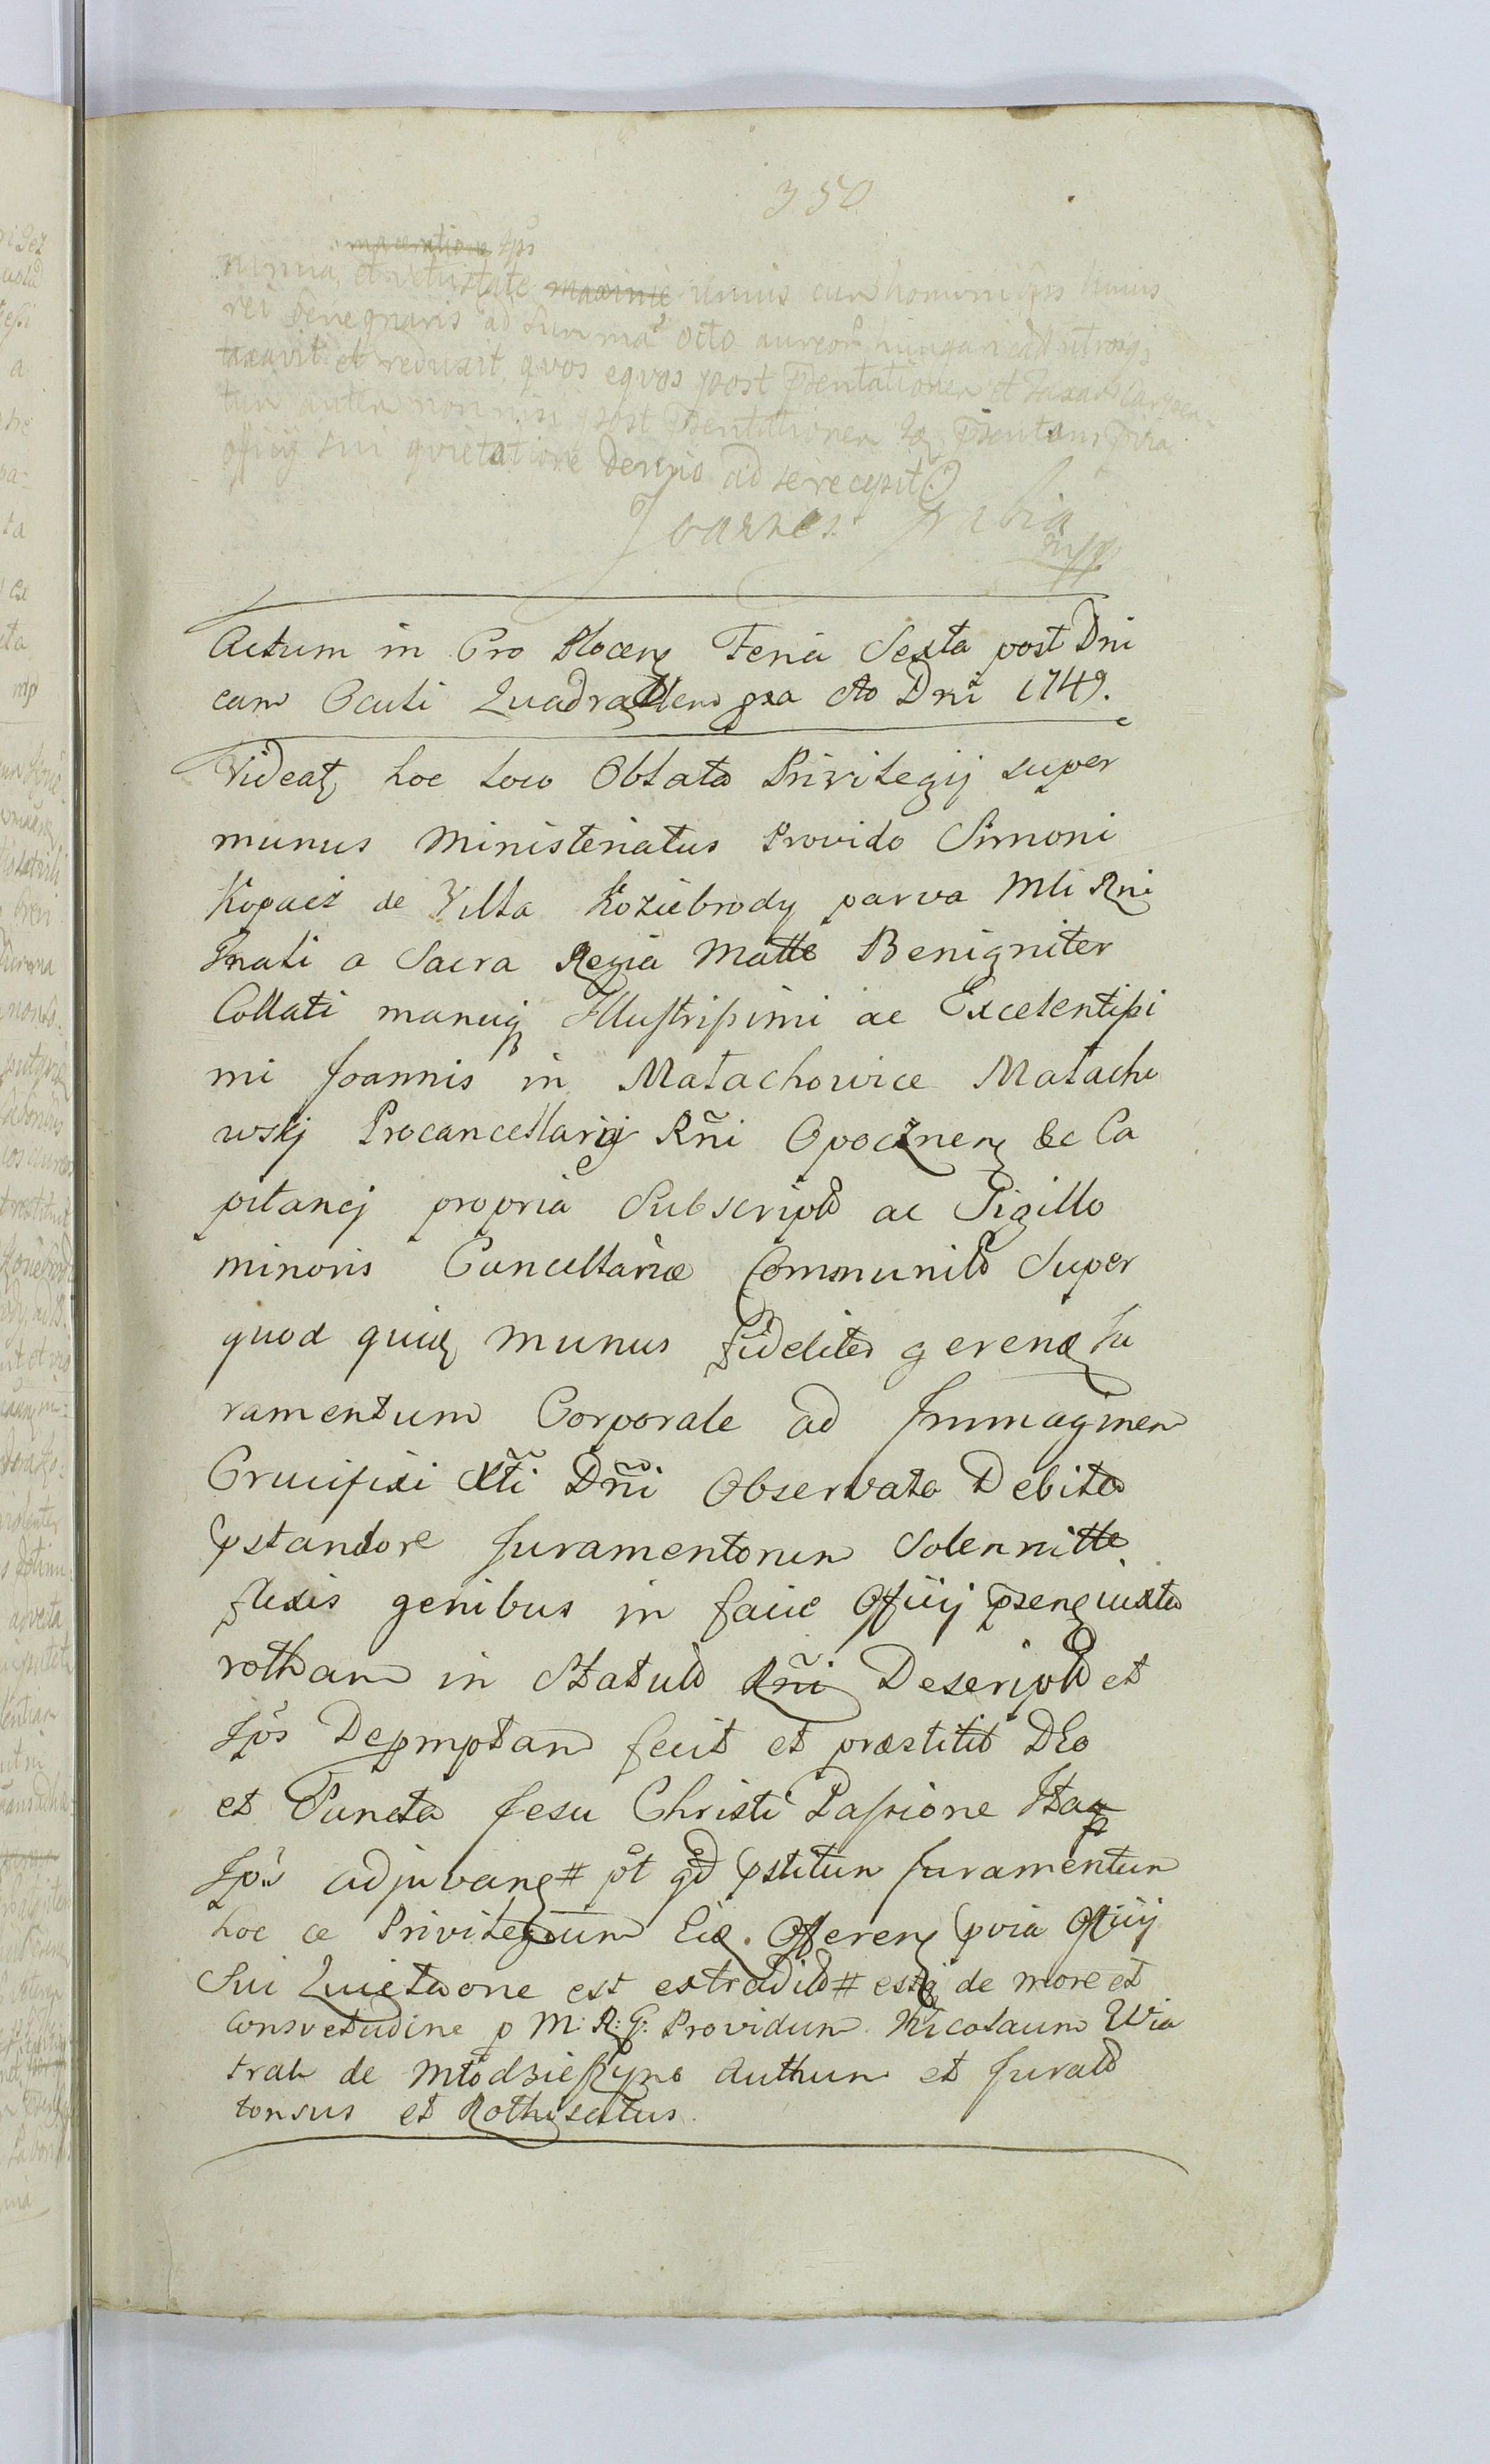 350
maceratione Ipõ
nimia, et vetustate maxime unius cum homini huius
rei benegnaris ad summã octo aureor hungaricał utrosq
taxavit et reduxit, quos equos post pñentationem et taxam
tum autem non nisi post pñentationem pñentans pvia
offiij sui quietatione denuo ad se recepit
Joannes Grabia
mpp
Actum in Cro Plocen Feria Sexta post Dni
cam Oculi Quadraglem gsa Ao Dni 1749.
Videat hoc loco Oblata Privilegij super
munus Ministeriatus Provido Simoni
Kopacz de Villa Koziebrody parva Mli Rni
Gnali a Sacra Regia Matte Benigniter
Collati manuq Illustrissimi ac Excelentissi
mi Joannis in Małachowice Małacho
wskj Procancellarij Rñi Opocznen &c Ca
pitanej propria Subscript ac Sigillo
minoris Cancellariæ Communit Super
quod quiq munus fideliter gerend Ju
ramentum Corporale ad Immaginem
Crucifixi Xti Dñi Observata Debita
pstandore Juramentorum Solennitte
flexis genibus in facie Offiij pñsen iuxta
rotham in Statut Rñi Descript et
Ipõ Depromptam fecit et præstitit DEo
et Sancta Jesu Christi Passione Itaq
Ipõ adjuvan # pt qd pstitum Juramentum
hoc ce Privilegium Eid. Offeren pvia Offiij
Sui Quietaone est extradit # estq de more et
Consvetudine p M: R: G: Providum Nicolaum Wia
trak de Młodzieszyno Authum et Jurat
tonsus et Rothisatus.